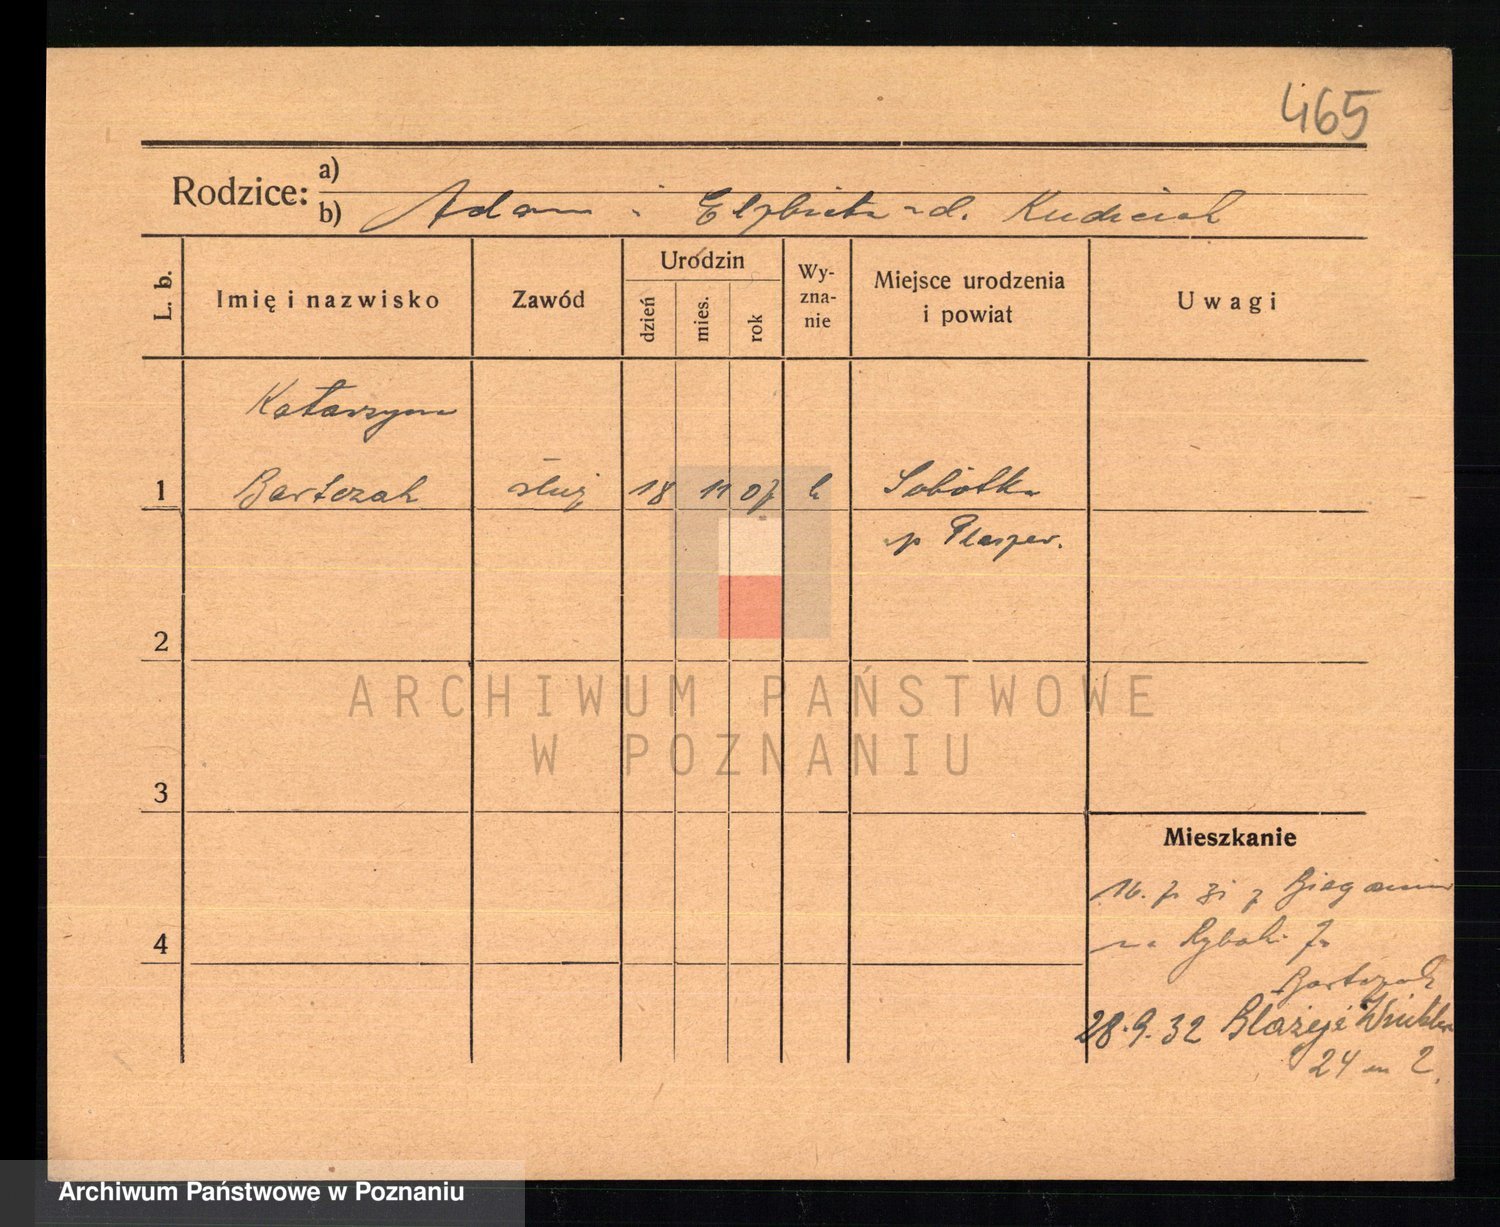 465
Rodzice: a)
b) Adam i Elżbieta zd. Kudziak
L. b.
Imię i nazwisko
Zawód
Urodzin
dzień
mies.
rok
Wy-
zna-
nie
Miejsce urodzenia
i powiat
Uwagi
Katarzyna
1 Bartczak służ 18 11 07 k Sobótka
p Pleszew.
2
ARCHIWUM PAŃSTWOWE
W POZNANIU
3
Mieszkanie
16. 7. 31 z
4
na Rybaki
Bartczak
28.9.32 Błażeje Winkler
24 m 2.
Archiwum Państwowe w Poznaniu